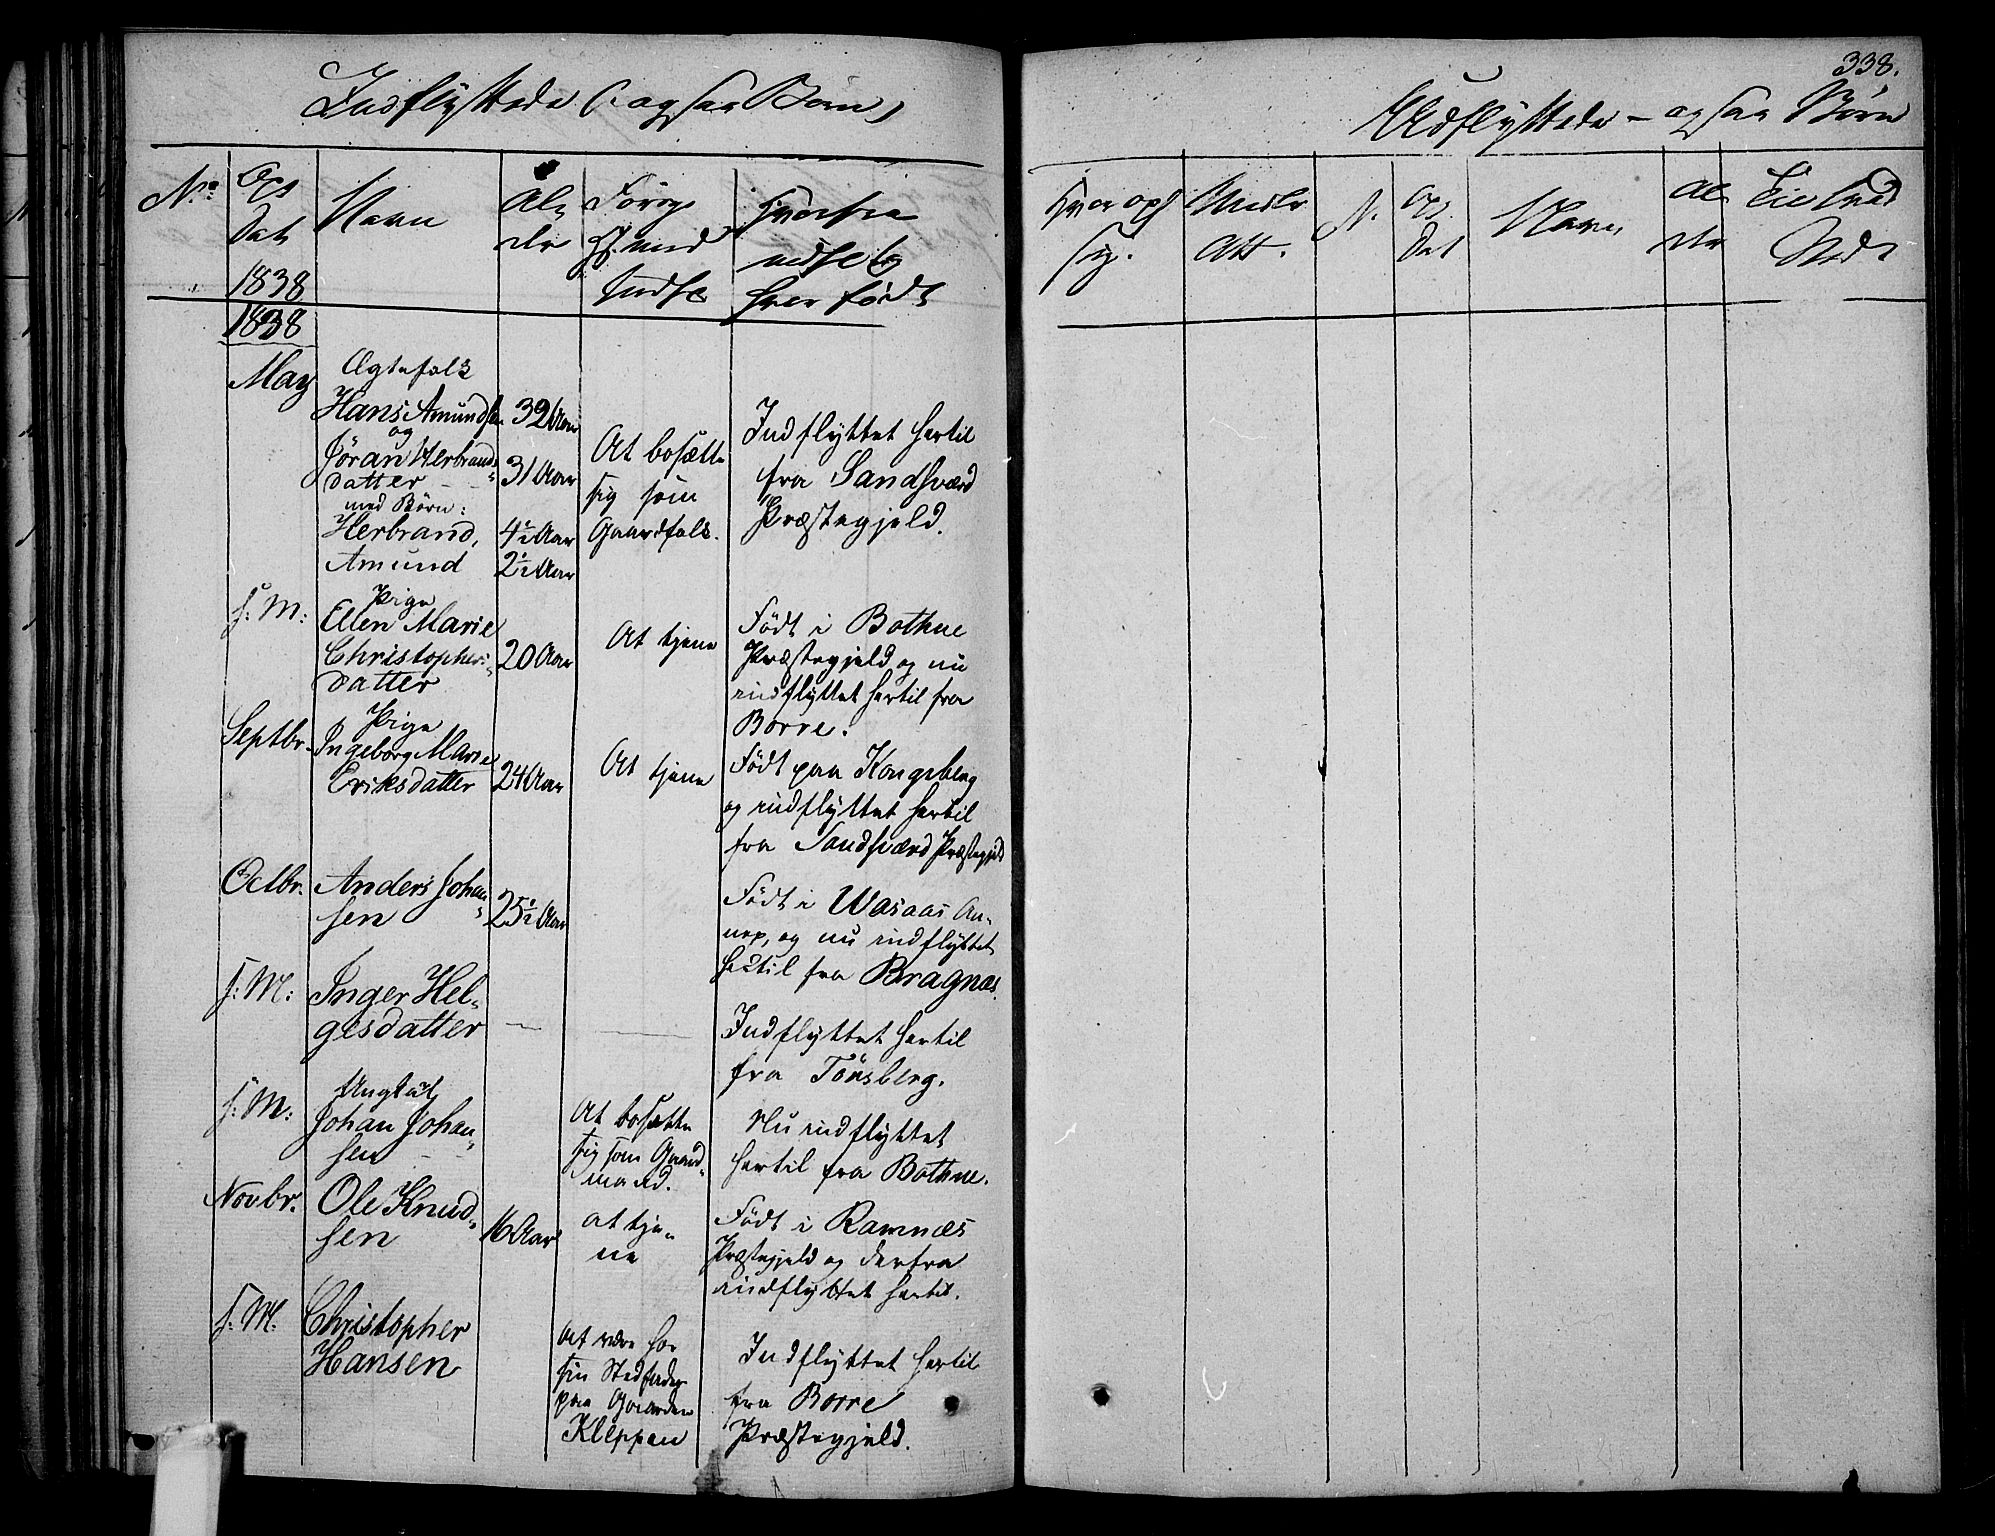 Indflyttede (: ogsaa Børn)
No.
Opf
Dat
1838
Navn
Al-
der
Forret
hvorfra
og
hvor født
1838
May
Ægtefolk
Hans Amundsen
og
Jöran Herbrands-
datter
med Børn:
Herbrand,
Amund
32 Aar
31 Aar
4½ Aar
2½ Aar
At bosætte
sig som
Gaardfolk.
Indflyttet hertil
fra Sandsværd
Præstegjeld.
s: M:
Pige
Ellen Marie
Christophers-
datter
20 Aar
At tjene
Født i Bothne
Præstegjeld og nu
indflyttet hertil fra
Borre.
Septbr.
Pige
Ingeborg Marie
Eriksdatter
24 Aar
At tjene
Født paa Kongsberg
og indflyttet hertil
fra Sandsværd Præstegjeld
Octbr.
Anders Johan-
sen
25½ Aar
Født i Wasaas An-
nex, og nu indflyttet
hertil fra Bragnæs.
s: M:
Inger Hel-
gesdatter
—
—
Indflyttet hertil
fra Tönsberg.
s: M:
Ungkarl
Johan Johan-
sen
At bosætte
sig som Gaard-
mand.
Nu indflyttet
hertil fra Bothne.
Novbr.
Ole Knud-
sen
16 Aar
at tje-
ne
Født i Ramnæs
Præstegjeld og derfra
indflyttet hertil.
s: M:
Christopher
Hansen
At være hos
sin Stedfader
paa Gaarden
Kleppan
Indflyttet hertil
fra Borre
Præstegjeld.
338.
Udflyttede - ogsaa Børn
Hvor opf
sig.
Medbr
Att.
N.
Opf
Dat
Navn
Al
der
Til hvad
Sted